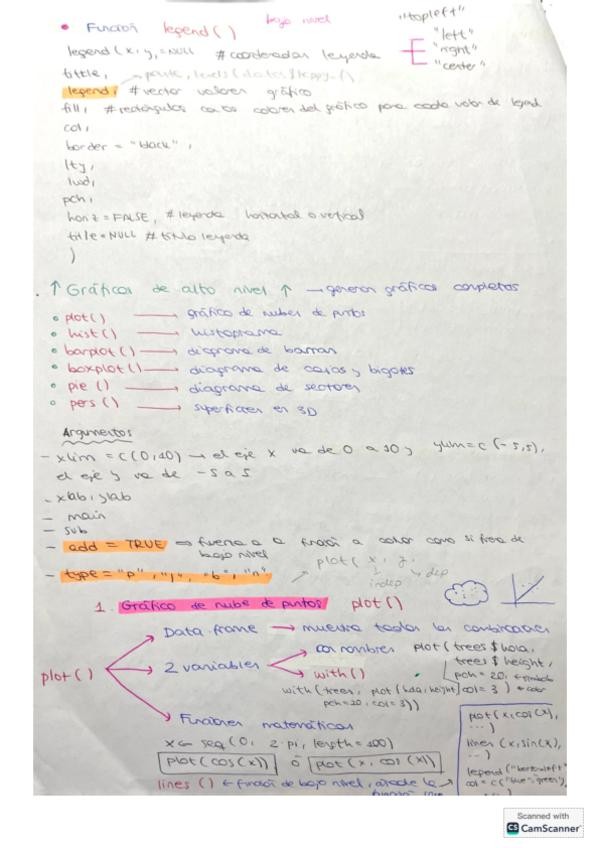 • Función legend() bajo nivel
"topleft"
"left"
"right"
"center"
legend(x, y,=NULL #coordenadas leyenda
tittle,
legend, #vector valores gráfico
fill, #rectángulos con los colores del gráfico para cada valor de legend
col,
border = "black",
lty,
lwd,
pch,
horiz = FALSE, #leyenda horizontal o vertical
title=NULL #título leyenda
)
↑ Gráficos de alto nivel ↑ → generan gráficos completos
plot() → gráfico de nubes de puntos
hist() → histograma
barplot() → diagrama de barras
boxplot() → diagrama de cajas y bigotes
pie () → diagrama de sectores
pers () → superficies en 3D
Argumentos
- xlim = c(0,10) → el eje x va de 0 a 10 y ylim=c(-5,5),
el eje y va de -5 a 5
- xlab, ylab
- main
- sub
- add = TRUE ⇒ fuerza a la función a como si fuera de
bajo nivel
- type = "p", "l", "b", "n"
plot( x, y,
indep
dep
1. Gráfico de nube de puntos plot()
plot()
Data.frame → muestra todas las combinaciones
2 variables
con nombres plot(trees$hoja,
trees$height,
pch=20,
with()
with(trees, plot(hoja,height) col=3) ← color
pch=20, col=3))
Funciones matemáticas
x<- seq(0, 2·pi, length=100)
plot(cos(x)) ó plot(x, cos(x))
lines() ← función de bajo nivel, añade la
plot(x,cos(x),
...)
lines(x,sin(x),
...)
legend("bottomleft"
col = c("blue","green"),
Scanned with
CS CamScanner